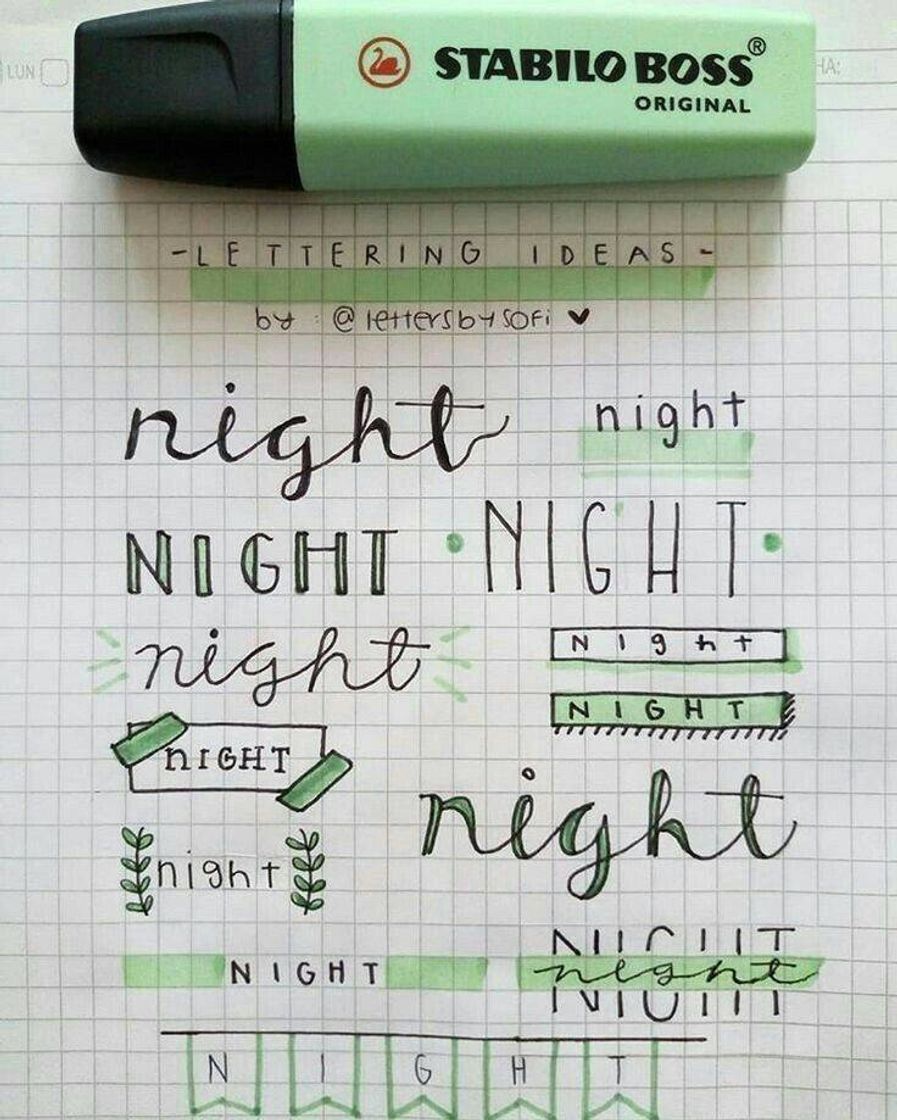 LUN
HA:
STABILO BOSS®
ORIGINAL
-LETTERING IDEAS-
by : @lettersbysofi ♥
night
night
NIGHT
NIGHT
night
Night
NIGHT
NIGHT
night
night
NIGHT
NIGHT
night
NIGHT